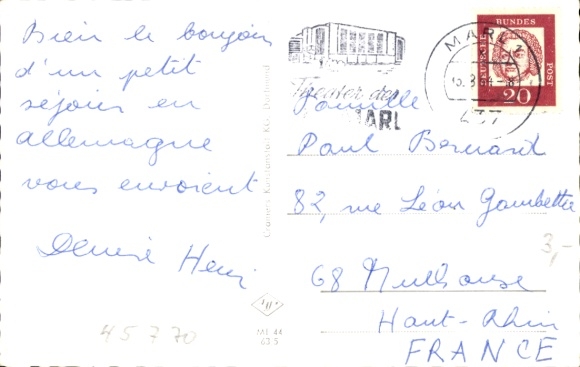 Bien le bonjour
d'un petit
séjour en
Allemagne
vous envoient
Denise Henri
Theater der
MARL
MARL
437
DEUTSCHE
BUNDES
POST
20
Famille
Paul Bernard
82, rue Léon Gambetta
68 Mulhouse
Haut-Rhin
FRANCE
3,-
Cramers Kunstanstalt KG., Dortmund
Ml 44
63 5
45770